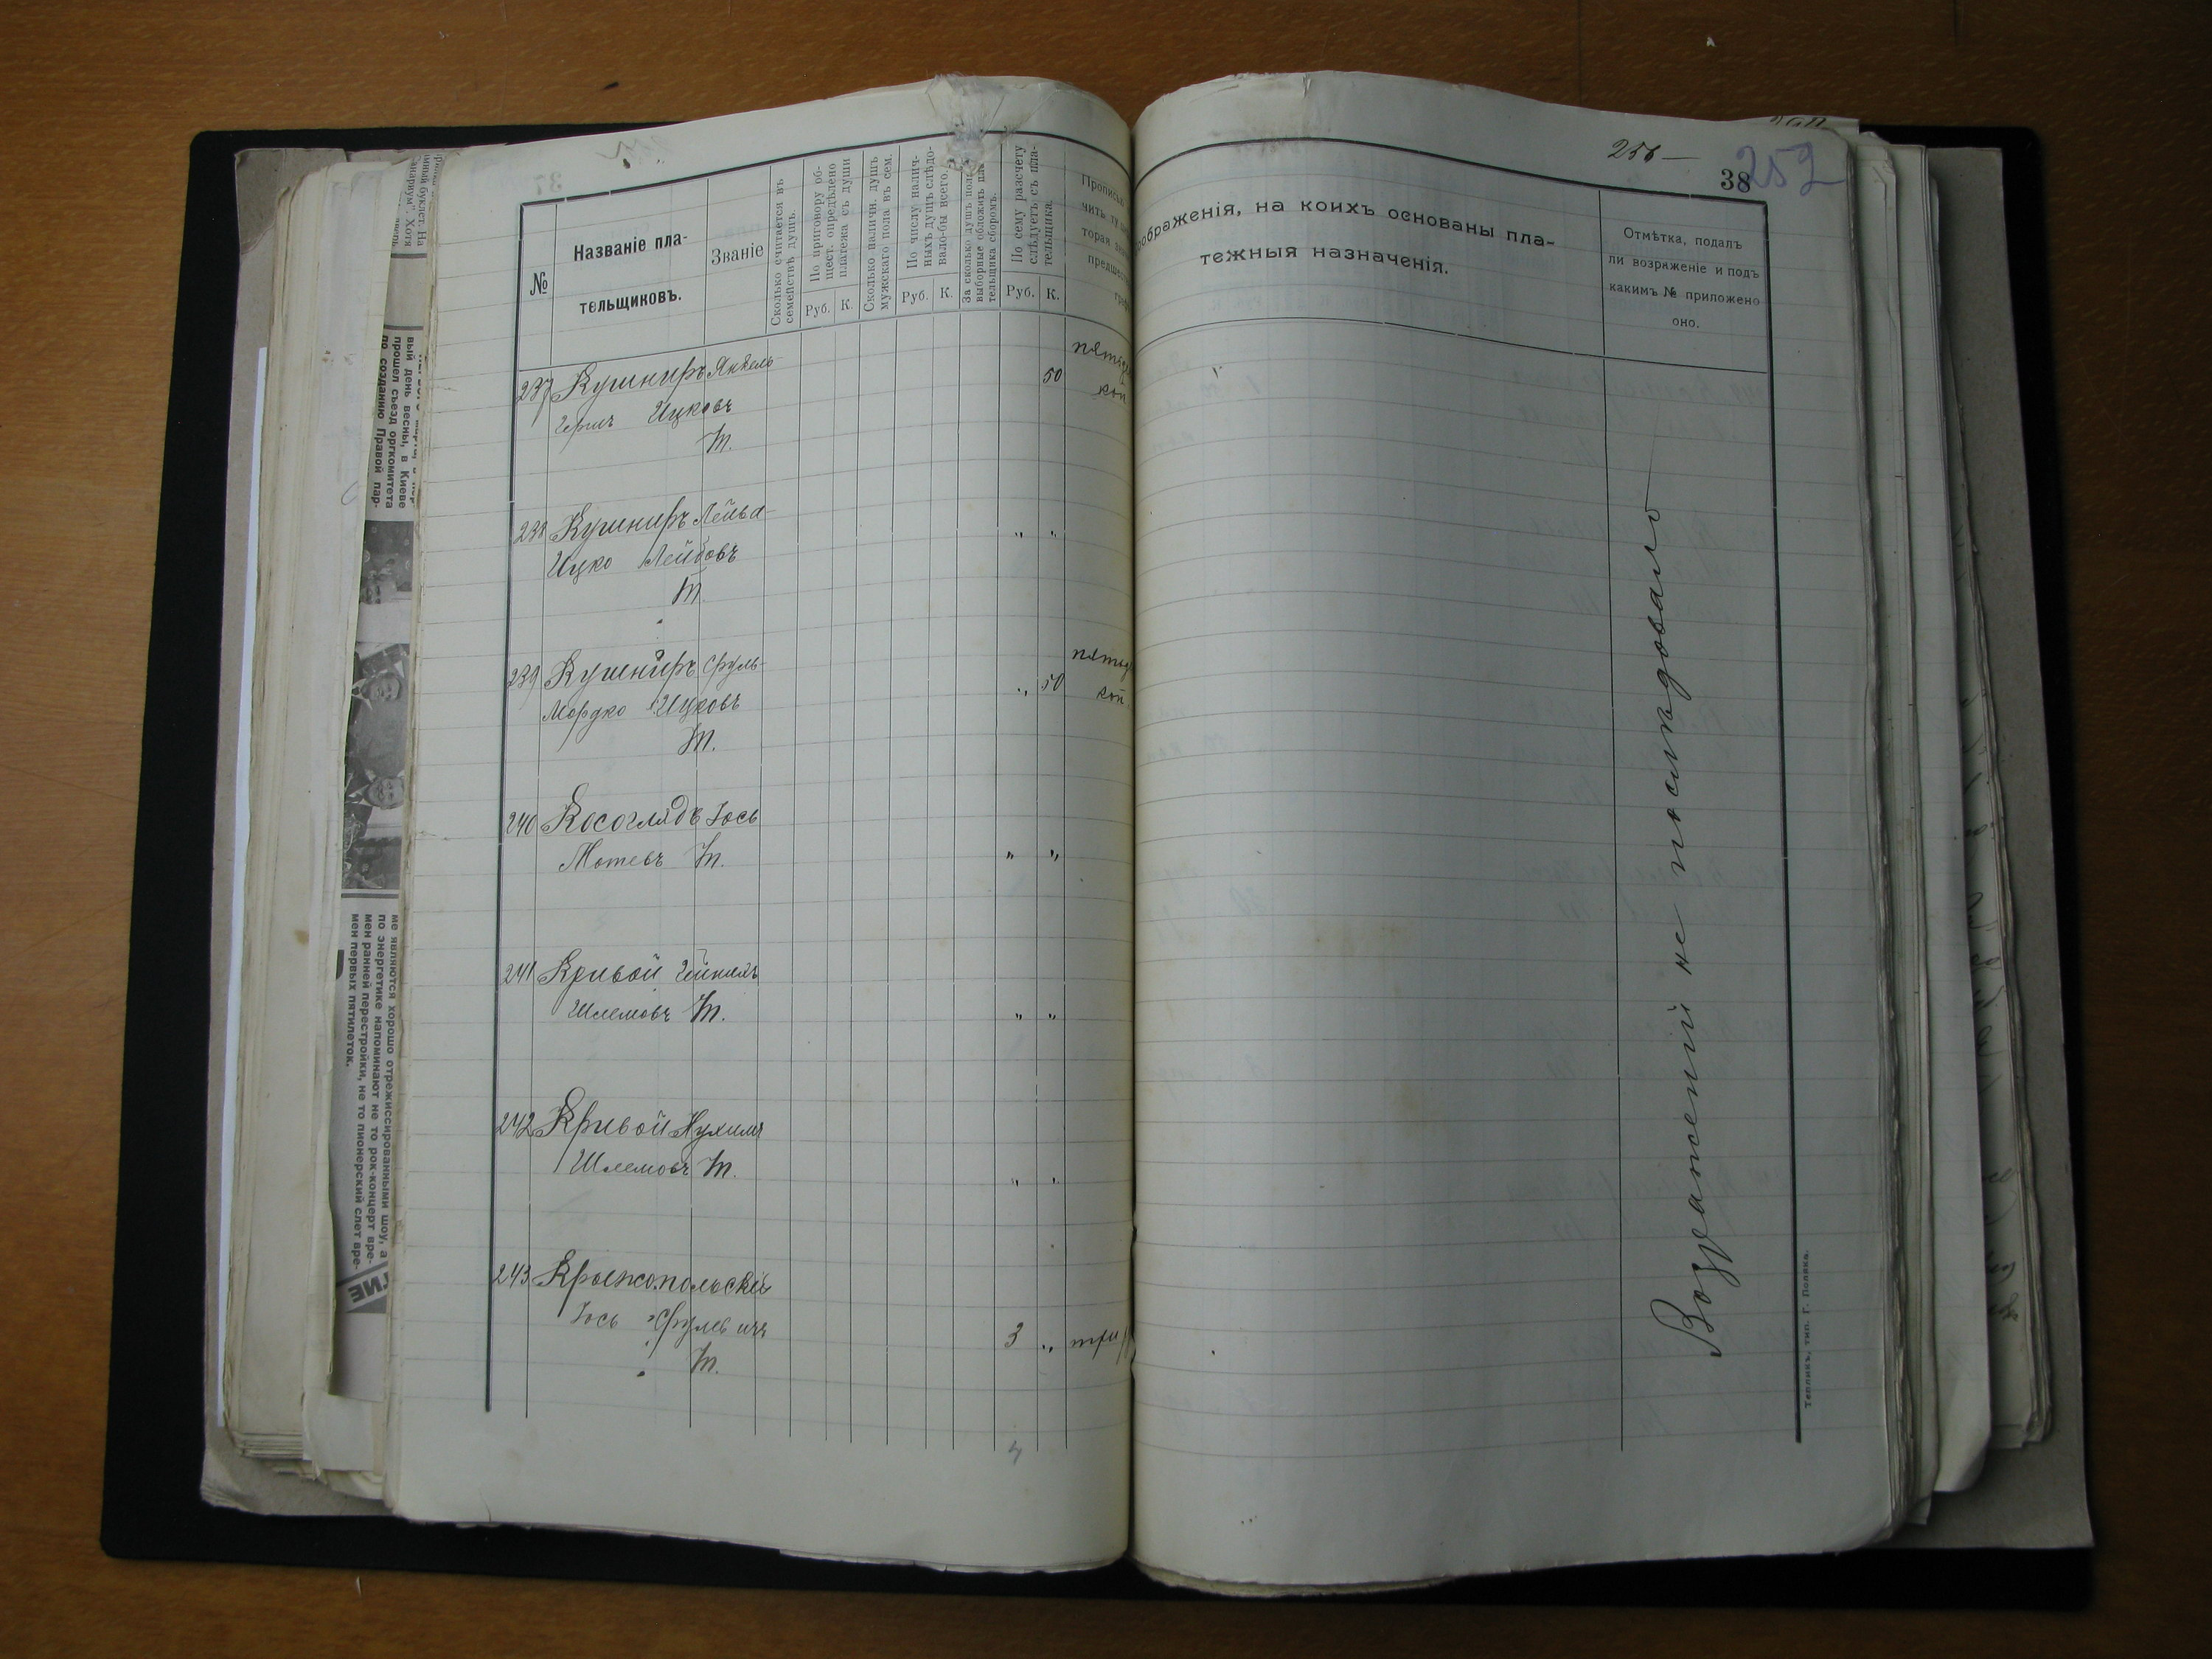 256 —
38
252
№
Названіе пла-
тельщиковъ.
Званіе
Сколько считается въ
семействѣ душъ.
По приговору об-
щест. опредѣлено
платежа съ души
Руб. К.
Сколько наличн. душъ
мужскаго пола въ сем.
По числу налич-
ныхъ душъ слѣдо-
вало-бы всего.
Руб. К.
За сколько душъ
выборные обложить
тельщика сборомъ.
По сему разсчету
слѣдуетъ съ пла-
тельщика.
Руб. К.
ображенія, на коихъ основаны пла-
тежныя назначенія.
Отмѣтка, подалъ
ли возраженіе и подъ
какимъ № приложено
оно.
237 Кушниръ Янкель-
Ицковъ
50
коп
238 Кушниръ Лейба-
Ицко Лейбовъ
" "
239 Кушниръ Сруль-
Мордко Ицковъ
" 50
коп
240 Косоглядъ Іось
Мотевъ
" "
241 Кривой
Шлемовъ
" "
242 Кривой Нухимъ
Шлемовъ
" "
243 Крыжопольскій
Іось Срулевичъ
3 " три
4
Возраженій не послѣдовало
Тепликъ, тип. Г. Поляка.
вый день весны, в Киеве
прошел съезд оргкомитета
по созданию Правой пар-
ме являются хорошо отрежиссированными шоу, а
по энергетике напоминают не то рок-концерт вре-
мен ранней перестройки, не то пионерский слет вре-
мен первых пятилеток.